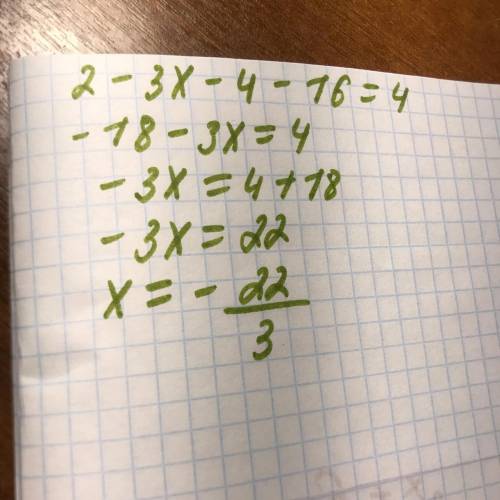 2 - 3x - 4 - 16 = 4
- 18 - 3x = 4
- 3x = 4 + 18
- 3x = 22
x = - 22/3